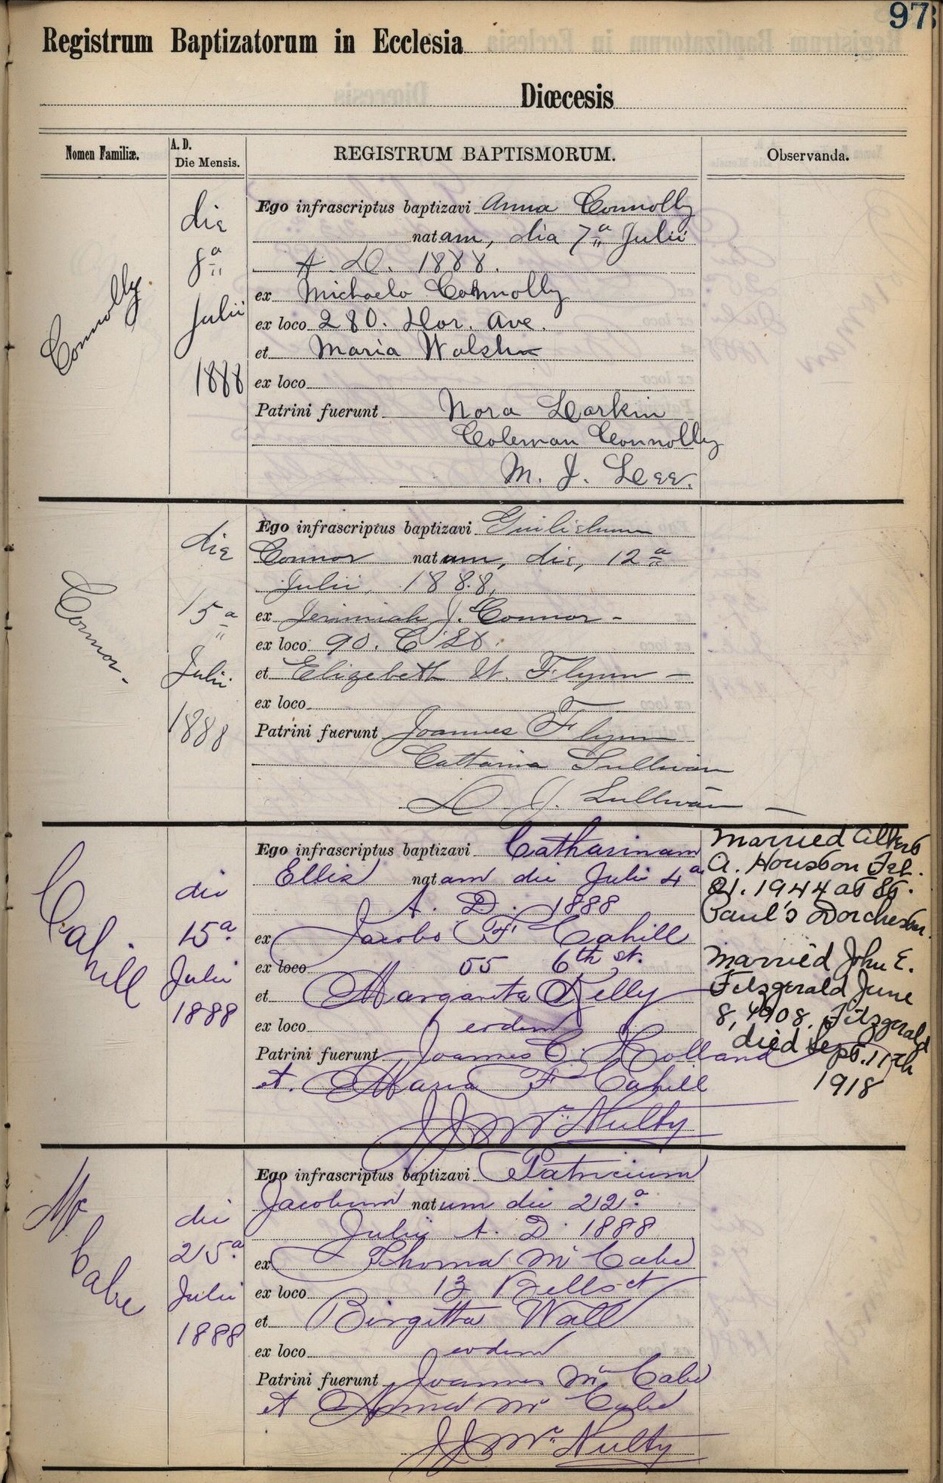 97
Registrum Baptizatorum in Ecclesia
Diœcesis
Nomen Familiæ.
A. D.
Die Mensis.
REGISTRUM BAPTISMORUM.
Observanda.
Connolly
die
8ª
Julii
1888
Ego infrascriptus baptizavi Anna Connolly
natam, dia 7ª Julii
A. D. 1888.
ex Michaelo Connolly
ex loco 280. Dor. Ave.
et Maria Walsh
ex loco
Patrini fuerunt Nora Larkin
Coleman Connolly
M. J. Lee.
Connor
die
15ª
Julii
1888
Ego infrascriptus baptizavi
Connor natum, die, 12ª
Julii, 1888,
ex Jerimiah J. Connor
ex loco 90. C St.
et Elizebeth W. Flynn
ex loco
Patrini fuerunt Joannes Flynn
Cattarina Sullivan
D. J. Sullivan
Cahill
die
15ª
Julii
1888
Ego infrascriptus baptizavi Catharinam
Ellis natam die Julii 4ª
A. D. 1888
ex Jacobo F Cahill
ex loco 55 6th st.
et Margarita Kelly
ex loco eodem
Patrini fuerunt Joannes C. Holland
et. Maria F Cahill
J J McNulty
Married Albert
A. Houston Feb.
21. 1944 at St.
Paul's Dorchester.
Married John E.
Fitzgerald June
8, 1908. Fitzgerald
died Sept. 11th
1918
Mc Cabe
die
25ª
Julii
1888
Ego infrascriptus baptizavi Patricium
Jacobum natum die 22ª
Julii A. D. 1888
ex Thoma McCabe
ex loco 13 Bells ct
et Birgitta Wall
ex loco eodem
Patrini fuerunt Joannes McCabe
et Anna McCabe
J J McNulty